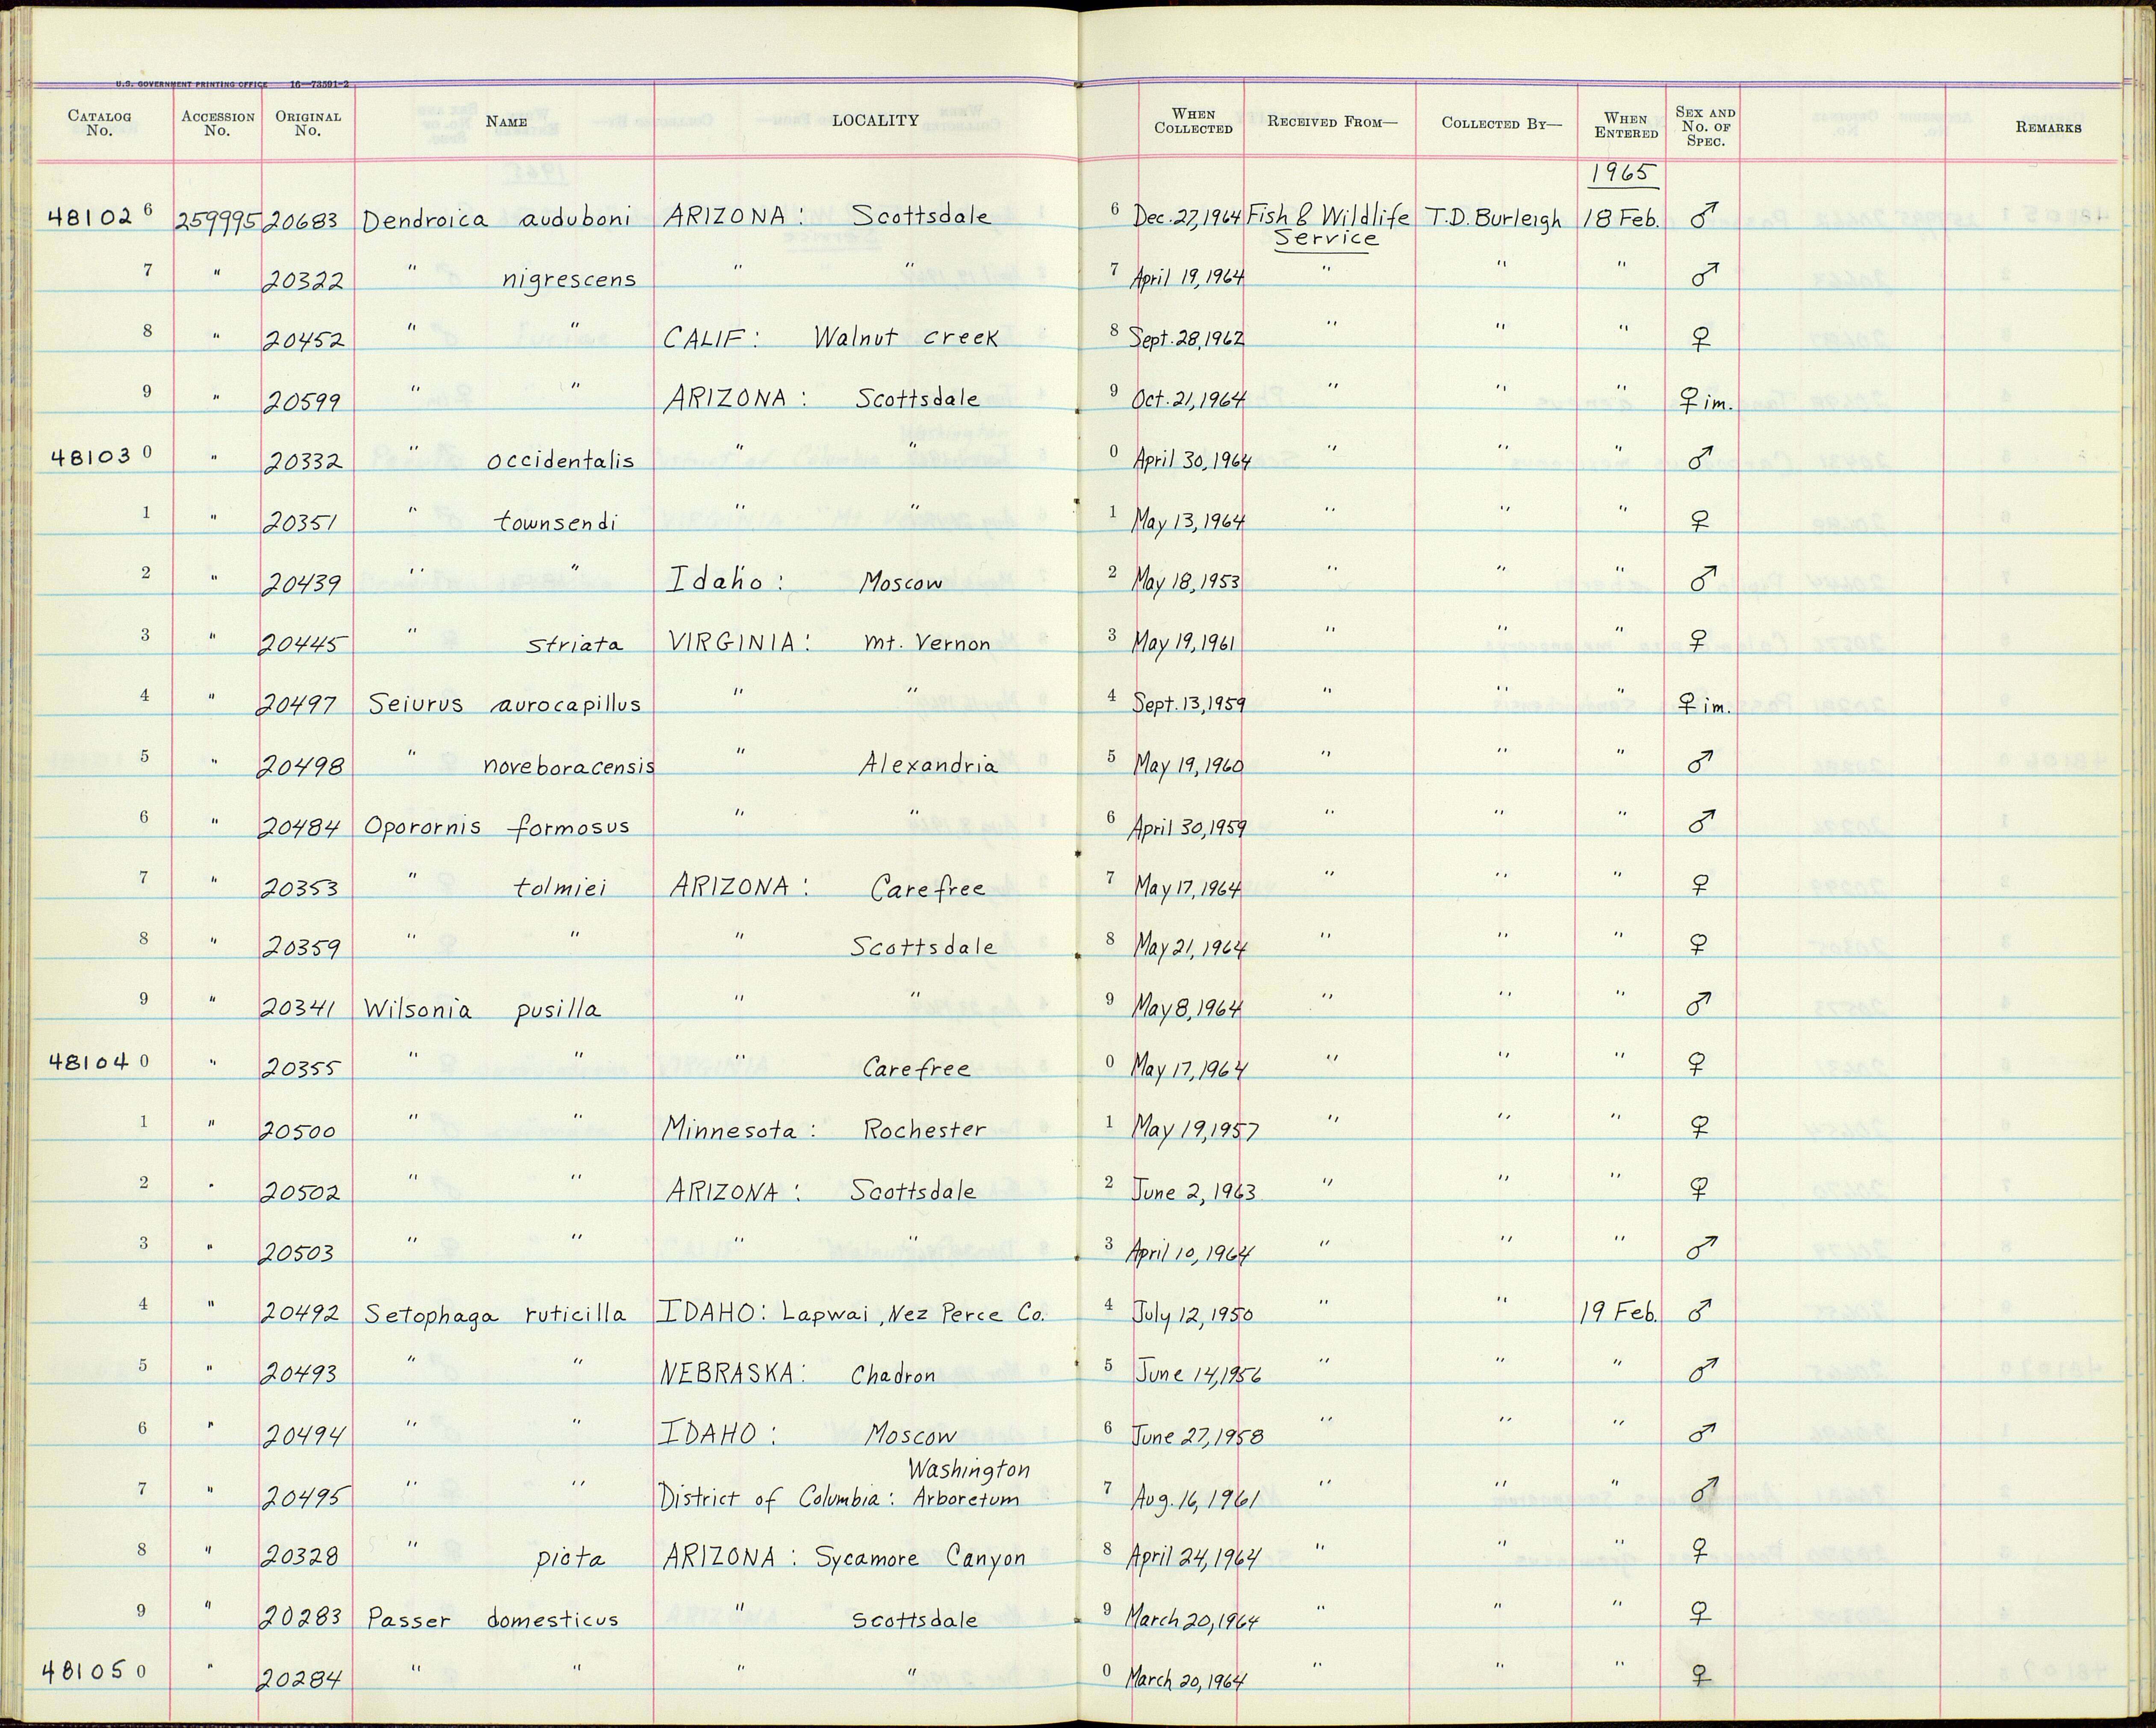 U.S. GOVERNMENT PRINTING OFFICE 16—73591-2
CATALOG No. ACCESSION No. ORIGINAL No. NAME LOCALITY WHEN COLLECTED RECEIVED FROM— COLLECTED BY— WHEN ENTERED SEX AND No. OF SPEC. REMARKS
1965
48102 6 259995 20683 Dendroica auduboni ARIZONA: Scottsdale 6 Dec. 27, 1964 Fish & Wildlife Service T.D. Burleigh 18 Feb. ♂
7 " 20322 " nigrescens " " 7 April 19, 1964 " " " ♂
8 " 20452 " " CALIF: Walnut creek 8 Sept. 28, 1962 " " " ♀
9 " 20599 " " ARIZONA: Scottsdale 9 Oct. 21, 1964 " " " ♀ im.
48103 0 " 20332 " occidentalis " " 0 April 30, 1964 " " " ♂
1 " 20351 " townsendi " " 1 May 13, 1964 " " " ♀
2 " 20439 " " Idaho: Moscow 2 May 18, 1953 " " " ♂
3 " 20445 " striata VIRGINIA: mt. Vernon 3 May 19, 1961 " " " ♀
4 " 20497 Seiurus aurocapillus " " 4 Sept. 13, 1959 " " " ♀ im.
5 " 20498 " noveboracensis " Alexandria 5 May 19, 1960 " " " ♂
6 " 20484 Oporornis formosus " " 6 April 30, 1959 " " " ♂
7 " 20353 " tolmiei ARIZONA: Carefree 7 May 17, 1964 " " " ♀
8 " 20359 " " " Scottsdale 8 May 21, 1964 " " " ♀
9 " 20341 Wilsonia pusilla " " 9 May 8, 1964 " " " ♂
48104 0 " 20355 " " " Carefree 0 May 17, 1964 " " " ♀
1 " 20500 " " Minnesota: Rochester 1 May 19, 1957 " " " ♀
2 " 20502 " " ARIZONA: Scottsdale 2 June 2, 1963 " " " ♀
3 " 20503 " " " " 3 April 10, 1964 " " " ♂
4 " 20492 Setophaga ruticilla IDAHO: Lapwai, Nez Perce Co. 4 July 12, 1950 " " 19 Feb. ♂
5 " 20493 " " NEBRASKA: Chadron 5 June 14, 1956 " " " ♂
6 " 20494 " " IDAHO: Moscow 6 June 27, 1958 " " " ♂
Washington
7 " 20495 " " District of Columbia: Arboretum 7 Aug. 16, 1961 " " " ♂
8 " 20328 " picta ARIZONA: Sycamore Canyon 8 April 24, 1964 " " " ♀
9 " 20283 Passer domesticus " Scottsdale 9 March 20, 1964 " " " ♀
48105 0 " 20284 " " " " 0 March 20, 1964 " " " ♀